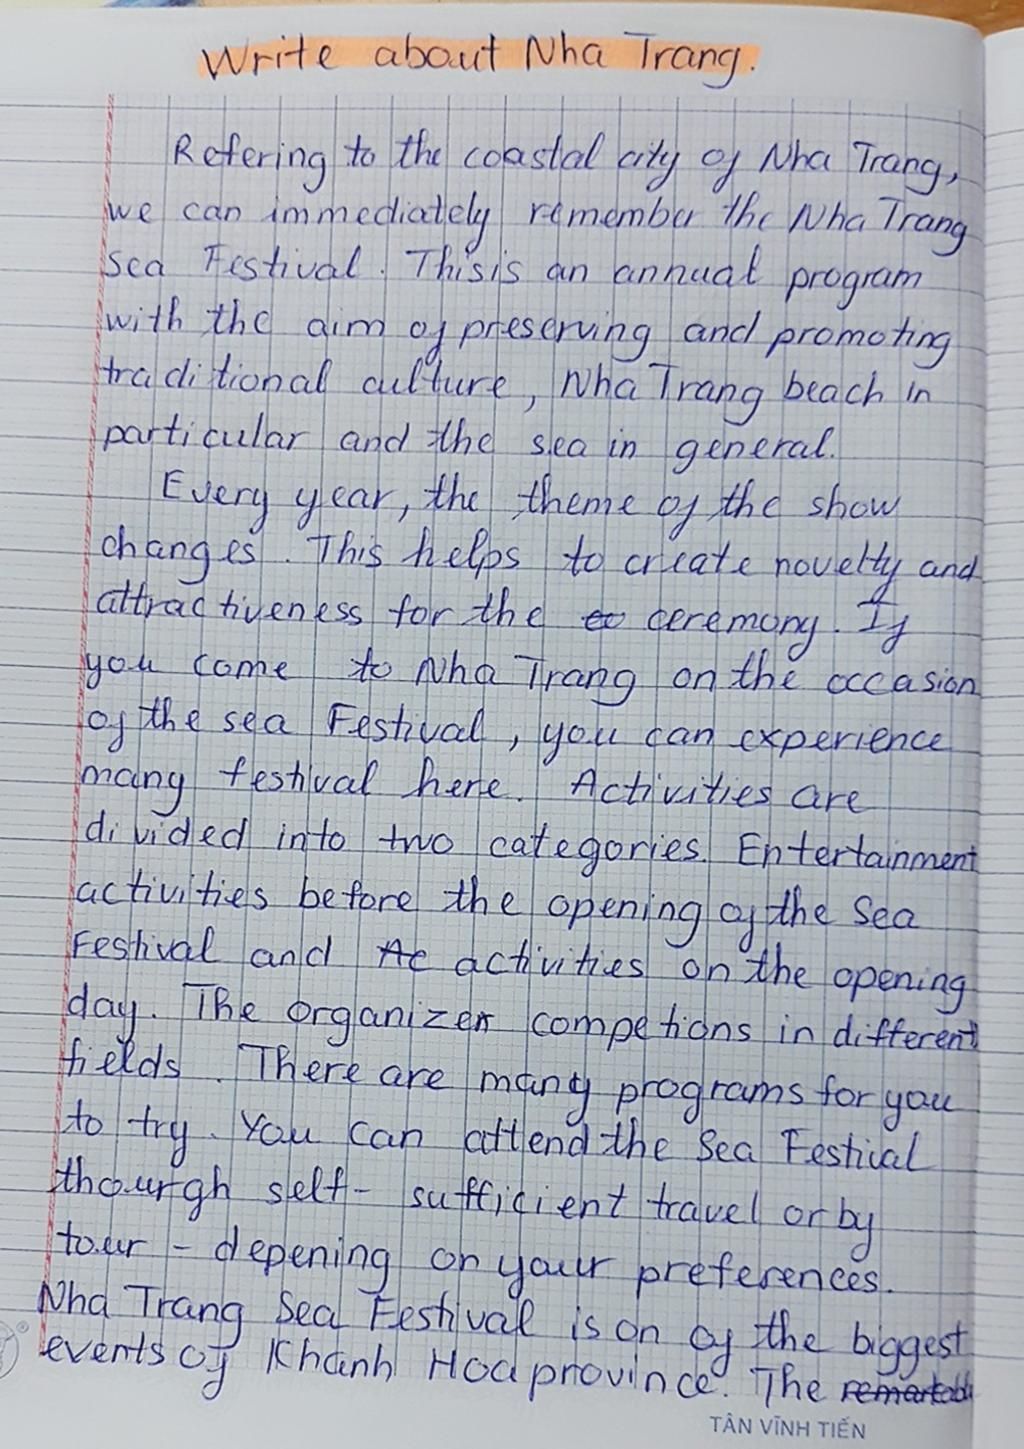 Write about Nha Trang.
Refering to the coastal city of Nha Trang,
we can immediately remember the Nha Trang
sea Festival. This is an annual program
with the aim of preserving and promoting
traditional culture, Nha Trang beach in
particular and the sea in general.
Every year, the theme of the show
changes. This helps to create novelty and
attractiveness for the ceremony. If
you come to Nha Trang on the occasion
of the sea Festival, you can experience
many festival here. Activities are
divided into two categories. Entertainment
activities before the opening of the Sea
Festival and activities on the opening
day. The organizer competions in different
fields. There are many programs for you
to try. You can attend the Sea Festival
thourgh self-sufficient travel or by
tour - depening on your preferences.
Nha Trang Sea Festival is on of the biggest
events of Khanh Hoa province. The
TÂN VĨNH TIẾN